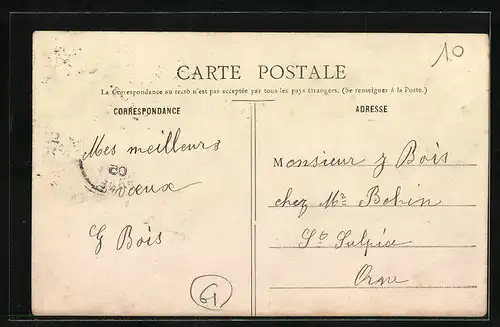 10
CARTE POSTALE
La Correspondance au recto n'est pas acceptée par tous les pays étrangers. (Se renseigner à la Poste.)
CORRESPONDANCE
ADRESSE
Mes meilleurs
voeux
G Bois
Monsieur G Bois
chez Mr Bobin
Ste Sulpice
Orne
61